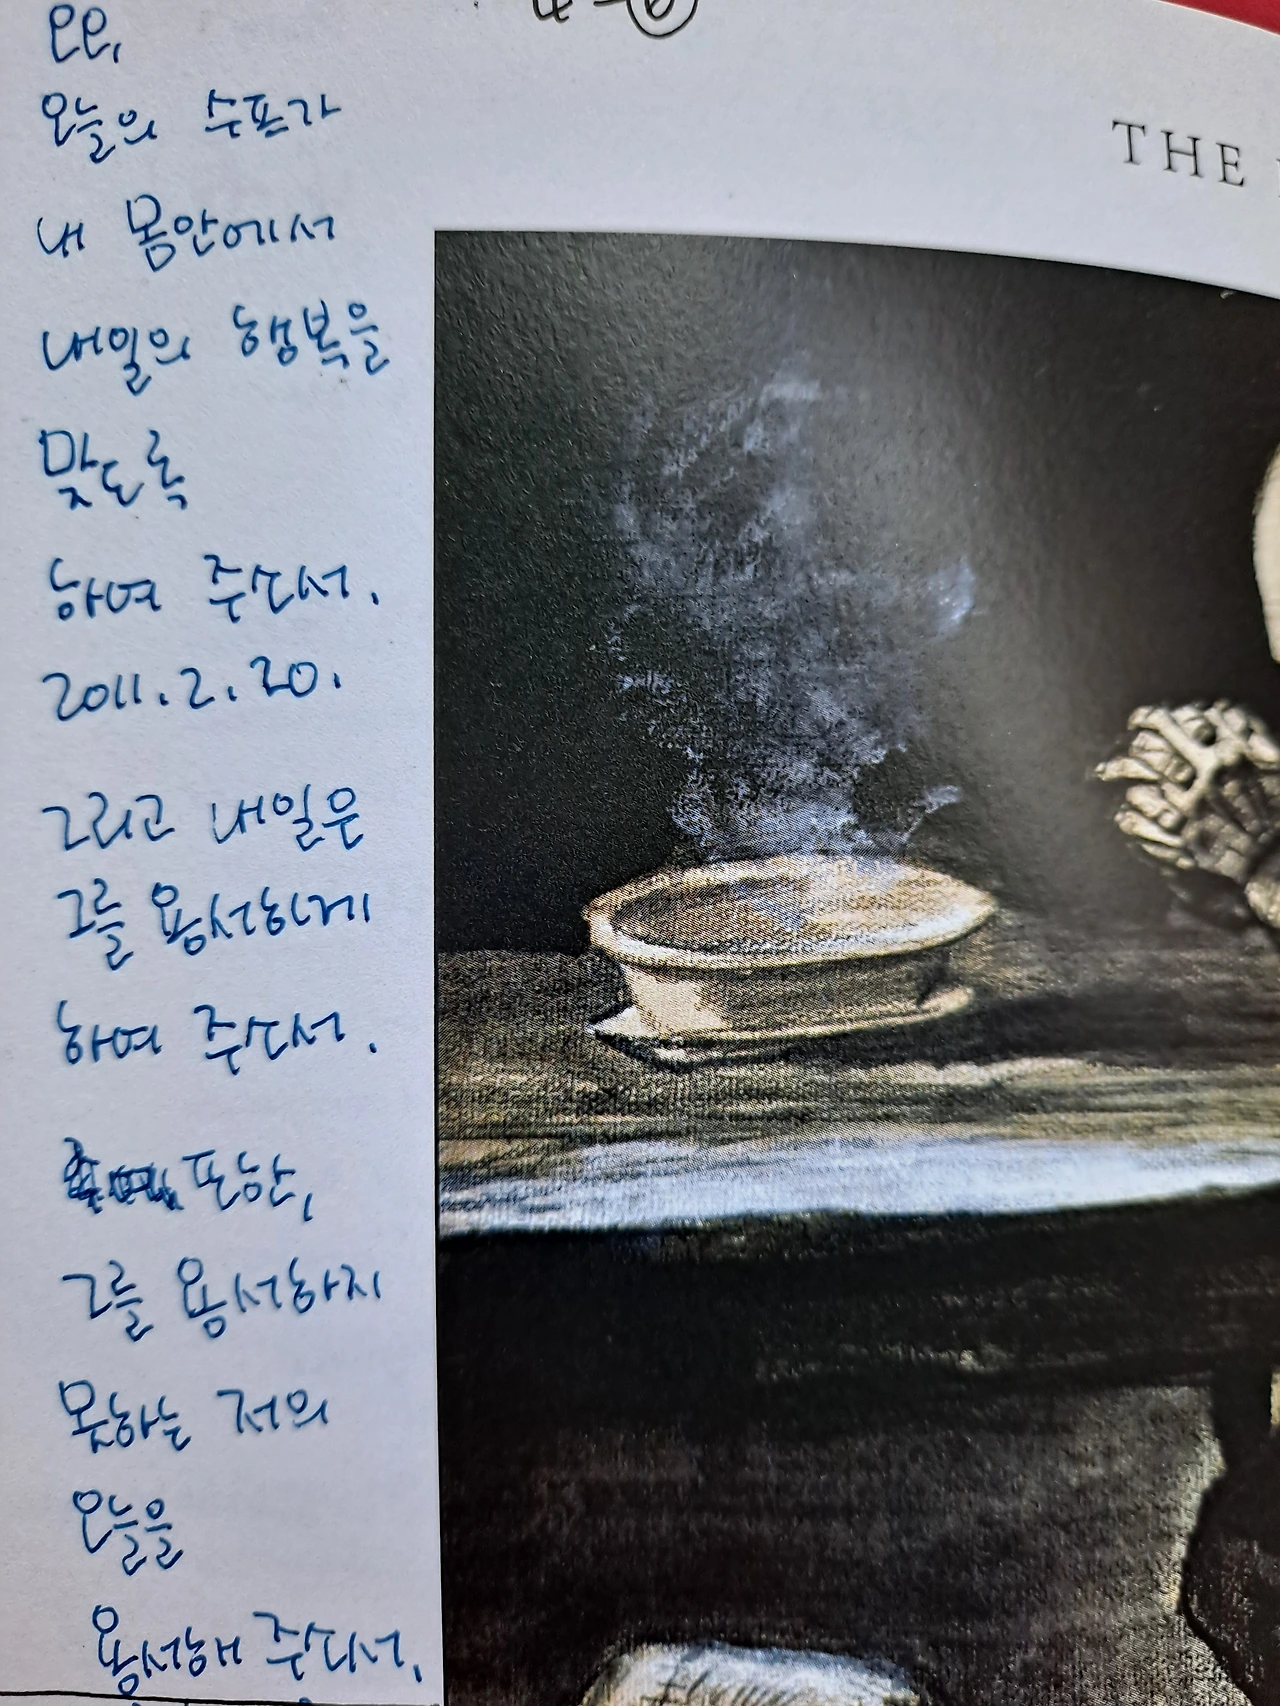 THE
오늘의 수프가
내 몸안에서
내일의 행복을
맞도록
하여 주소서.
2011.2.20.
그리고 내일은
그를 용서하게
하여 주소서.
또한,
그를 용서하지
못하는 저의
오늘을
용서해 주소서.